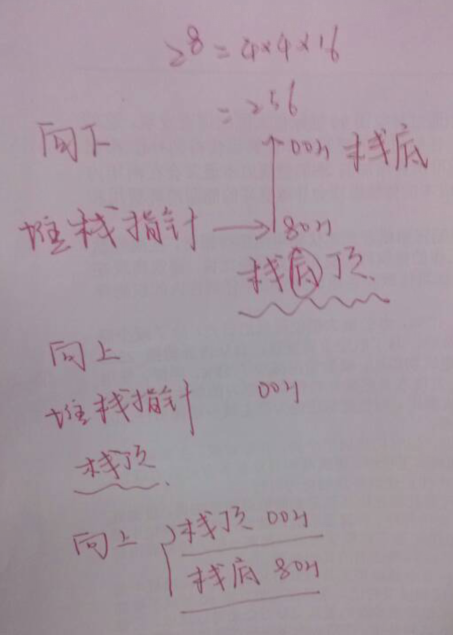 2⁸ = 4×4×16
= 256
向下
00H 栈底
堆栈指针 → 80H
栈底顶
向上
堆栈指针 00H
栈顶
向上 栈顶 00H
栈底 80H